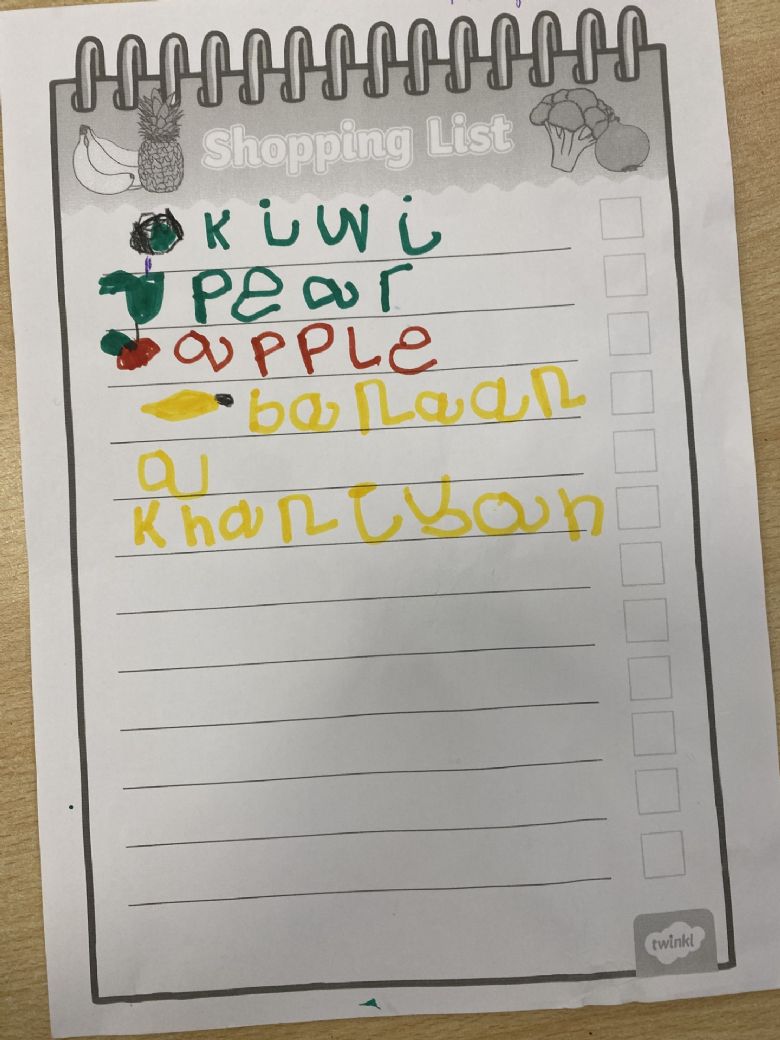 Shopping List
kiwi
pear
apple
banaan
a
twinkl